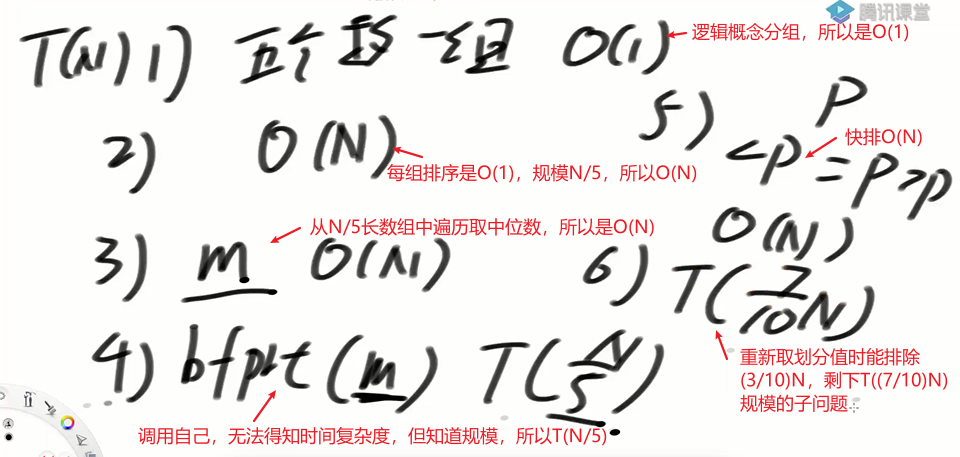 腾讯课堂
T(N) 1) 五个数一组 O(1)
逻辑概念分组，所以是O(1)
2) O(N)
每组排序是O(1)，规模N/5，所以O(N)
3) m O(N)
从N/5长数组中遍历取中位数，所以是O(N)
4) bfprt(m) T(N/5)
调用自己，无法得知时间复杂度，但知道规模，所以T(N/5)
5) P
<P =P >P
快排O(N)
O(N)
6) T(7/10N)
重新取划分值时能排除
(3/10)N，剩下T((7/10)N)
规模的子问题